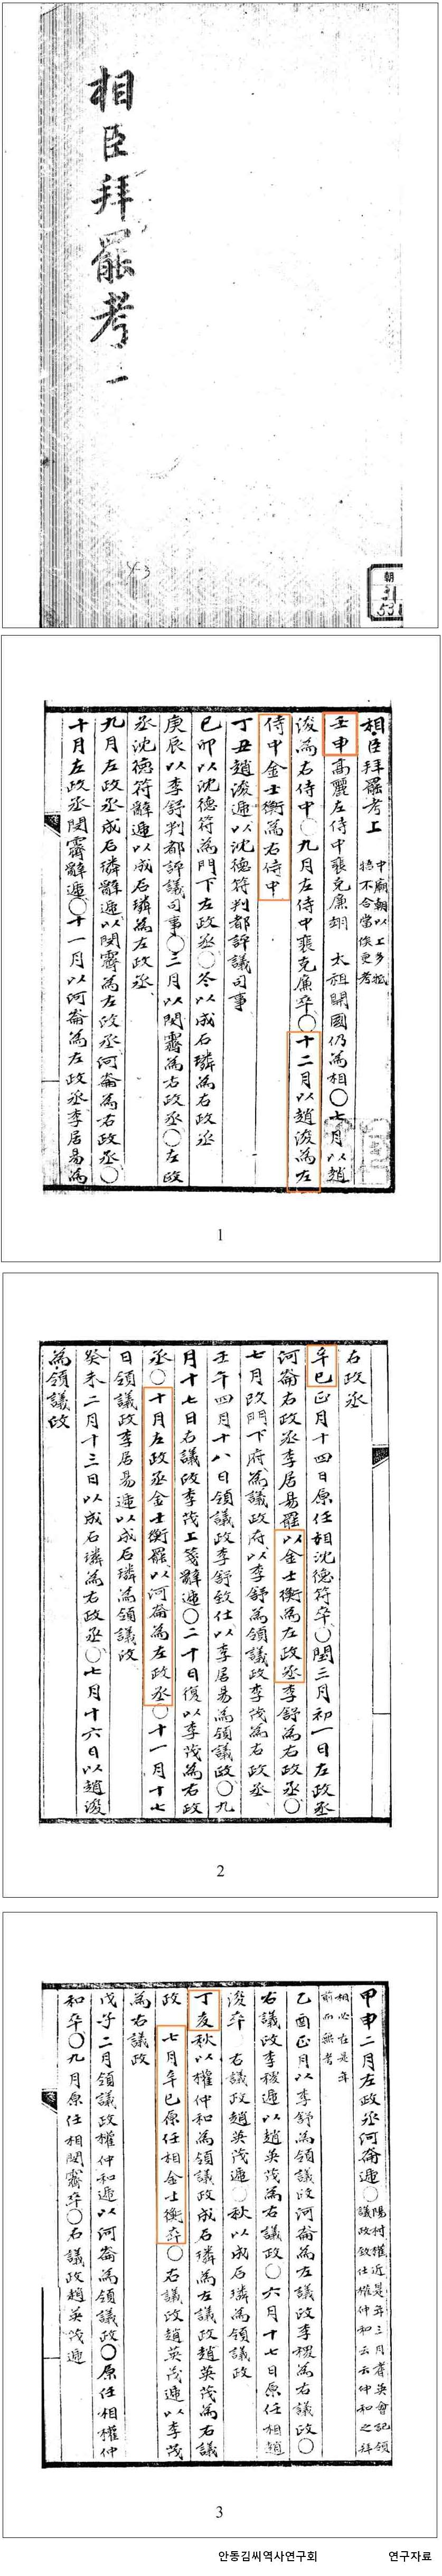 相臣拜罷考 一
43
朝
31
531
相臣拜罷考上 中廟朝以上多抵牾不合當俟更考
壬申高麗左侍中裵克廉 太祖開國仍爲相〇七月以趙
浚爲右侍中〇九月左侍中裵克廉卒〇十二月以趙浚爲左
侍中金士衡爲右侍中
丁丑趙浚遞以沈德符判都評議司事
己卯以沈德符爲門下左政丞〇冬以成石璘爲右政丞
庚辰以李舒判都評議司事〇三月以閔霽爲右政丞〇左政
丞沈德符辭遞以成石璘爲左政丞
九月左政丞成石璘辭遞以閔霽爲左政丞河崙爲右政丞〇
十月左政丞閔霽辭遞〇十一月以河崙爲左政丞李居易爲
1
右政丞
辛巳正月十四日原任相沈德符卒〇閏三月初一日左政丞
河崙右政丞李居易罷以金士衡爲左政丞李舒爲右政丞〇
七月改門下府爲議政府以李舒爲領議政李茂爲右政丞
壬午四月十八日領議政李舒致仕以李居易爲領議政〇九
月十七日右議政李茂上箋辭遞〇二十日復以李茂爲右政
丞〇十月左政丞金士衡罷以河崙爲左政丞〇十一月十七
日領議政李居易遞以成石璘爲領議政
癸未二月十三日以成石璘爲右政丞〇七月十六日以趙浚
爲領議政
2
甲申二月左政丞河崙遞〇陽村權近是年三月耆英會記領議政致仕權仲和云云仲和之拜
相必在是年前而無考
乙酉正月以李舒爲領議政河崙爲左議政李稷爲右議政〇
右議政李稷遞以趙英茂爲右議政〇六月十七日原任相趙
浚卒 右議政趙英茂遞〇秋以成石璘爲領議政
丁亥秋以權仲和爲領議政成石璘爲左議政趙英茂爲右議
政 七月辛巳原任相金士衡卒〇右議政趙英茂遞以李茂
爲右議政
戊子二月領議政權仲和遞以河崙爲領議政〇原任相權仲
和卒〇九月原任相閔霽卒〇右議政趙英茂遞
3
안동김씨역사연구회 연구자료